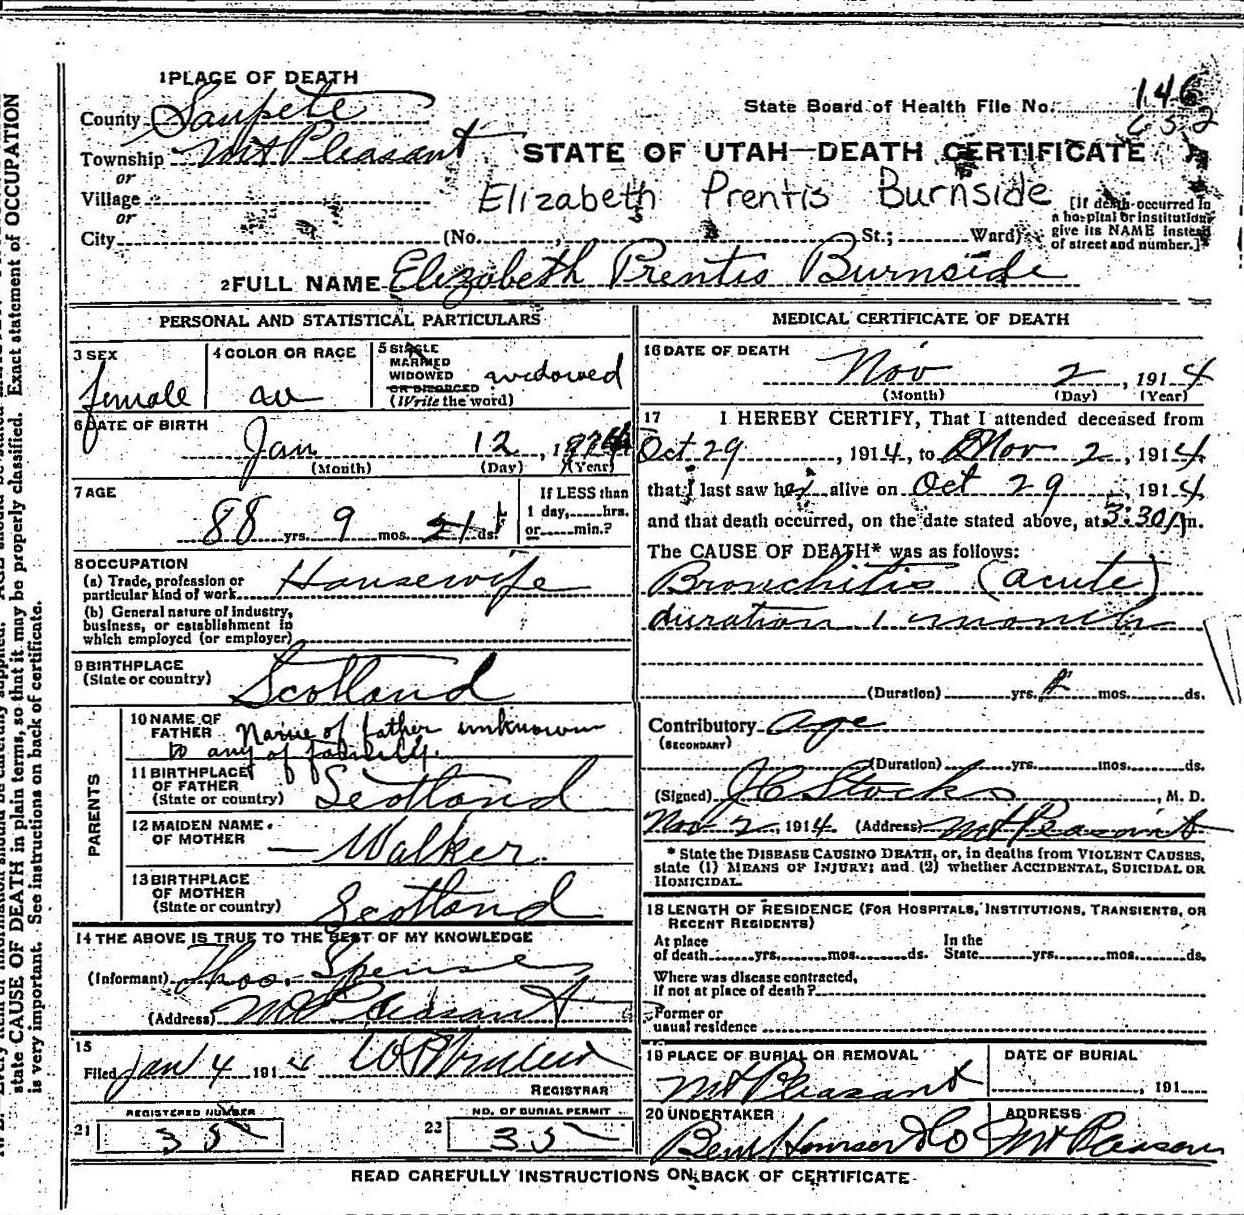 1 PLACE OF DEATH
County Sanpete
State Board of Health File No. 146
652
Township Mt Pleasant
STATE OF UTAH—DEATH CERTIFICATE
or
Village
Elizabeth Prentis Burnside
or
City (No. , St.; Ward)
[If death occurred in a hospital or institution give its NAME instead of street and number.]
2 FULL NAME Elizabeth Prentis Burnside
PERSONAL AND STATISTICAL PARTICULARS
3 SEX
female
4 COLOR OR RACE
w
5 SINGLE
MARRIED
WIDOWED
OR DIVORCED
(Write the word)
widowed
6 DATE OF BIRTH
Jan 12, 1
(Month) (Day) (Year)
7 AGE
88 yrs. 9 mos. 21 ds.
If LESS than
1 day, hrs.
or min.?
8 OCCUPATION
(a) Trade, profession or
particular kind of work Housewife
(b) General nature of industry,
business, or establishment in
which employed (or employer)
9 BIRTHPLACE
(State or country) Scotland
PARENTS
10 NAME OF
FATHER Name of father unknown
to any of family.
11 BIRTHPLACE
OF FATHER
(State or country) Scotland
12 MAIDEN NAME
OF MOTHER — Walker.
13 BIRTHPLACE
OF MOTHER
(State or country) Scotland
14 THE ABOVE IS TRUE TO THE BEST OF MY KNOWLEDGE
(Informant) Thos. Spenser
(Address) Mt Pleasant
15
Filed Jan 4 191
REGISTRAR
REGISTERED NUMBER
21 35
NO. OF BURIAL PERMIT
22 35
MEDICAL CERTIFICATE OF DEATH
16 DATE OF DEATH
Nov 2, 1914
(Month) (Day) (Year)
17 I HEREBY CERTIFY, That I attended deceased from
Oct 29, 1914, to Nov 2, 1914
that I last saw her alive on Oct 29, 1914
and that death occurred, on the date stated above, at 3:30 m.
The CAUSE OF DEATH* was as follows:
Bronchitis (acute)
duration 1 month
(Duration) yrs. mos. ds.
Contributory age
(SECONDARY)
(Duration) yrs. mos. ds.
(Signed) J C Stocks, M. D.
Nov 2, 1914. (Address) Mt Pleasant
* State the DISEASE CAUSING DEATH, or, in deaths from VIOLENT CAUSES,
state (1) MEANS OF INJURY; and (2) whether ACCIDENTAL, SUICIDAL OR
HOMICIDAL.
18 LENGTH OF RESIDENCE (FOR HOSPITALS, INSTITUTIONS, TRANSIENTS, OR
RECENT RESIDENTS)
At place In the
of death yrs. mos. ds. State yrs. mos. ds.
Where was disease contracted,
if not at place of death?
Former or
usual residence
19 PLACE OF BURIAL OR REMOVAL
Mt Pleasant
DATE OF BURIAL
, 191
20 UNDERTAKER
ADDRESS
Mt Pleasant
READ CAREFULLY INSTRUCTIONS ON BACK OF CERTIFICATE
state CAUSE OF DEATH in plain terms, so that it may be properly classified. Exact statement of OCCUPATION
is very important. See instructions on back of certificate.